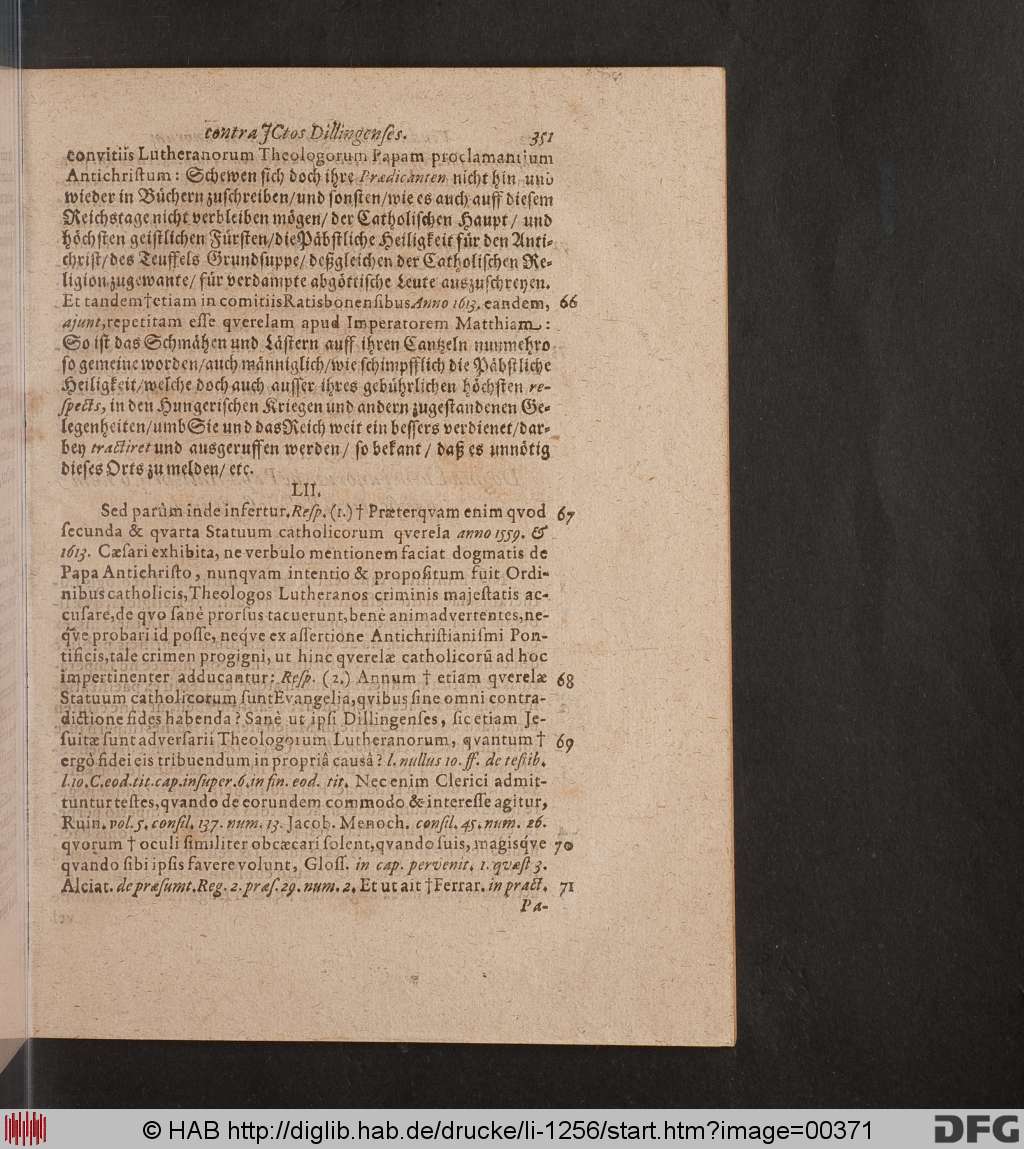 contra JCtos Dillingenses. 351
convitiis Lutheranorum Theologorum Papam proclamantium
Antichristum: Schewen sich doch ihre Prædicanten nicht hin und
wieder in Büchern zuschreiben/und sonsten/wie es auch auff diesem
Reichstage nicht verbleiben mögen/ der Catholischen Haupt/ und
höchsten geistlichen Fürsten/die Päbstliche Heiligkeit für den Anti-
christ/des Teuffels Grundsuppe/ deßgleichen der Catholischen Re-
ligion zugewante/ für verdampte abgöttische Leute auszuschreyen.
Et tandem†etiam in comitiis Ratisbonensibus Anno 1613. eandem, 66
ajunt, repetitam esse qverelam apud Imperatorem Matthiam:
So ist das Schmähen und Lästern auff ihren Cantzeln nunmehro
so gemeine worden/auch männiglich/wie schimpfflich die Päbstliche
Heiligkeit/welche doch auch ausser ihres gebührlichen höchsten re-
spects, in den Hungerischen Kriegen und andern zugestandenen Ge-
legenheiten/umb Sie und das Reich weit ein bessers verdienet/dar-
bey tractiret und ausgeruffen werden/ so bekant/ daß es unnötig
dieses Orts zu melden/ etc.
LII.
Sed parùm inde infertur. Resp. (1.) † Præterqvam enim qvod 67
secunda & qvarta Statuum catholicorum qverela anno 1559. &
1613. Cæsari exhibita, ne verbulo mentionem faciat dogmatis de
Papa Antichristo, nunqvam intentio & propositum fuit Ordi-
nibus catholicis, Theologos Lutheranos criminis majestatis ac-
cusare, de qvo sanè prorsus tacuerunt, benè animadvertentes, ne-
qve probari id posse, neqve ex assertione Antichristianismi Pon-
tificis, tale crimen progigni, ut hinc qverelæ catholicorũ ad hoc
impertinenter adducantur: Resp. (2.) Annum † etiam qverelæ 68
Statuum catholicorum sunt Evangelia, qvibus sine omni contra-
dictione fides habenda? Sanè ut ipsi Dillingenses, sic etiam Je-
suitæ sunt adversarii Theologorum Lutheranorum, qvantum † 69
ergò fidei eis tribuendum in propriâ causâ? l. nullus 10. ff. de testib.
l. 10. C. eod. tit. cap. insuper. 6. in fin. eod. tit. Nec enim Clerici admit-
tuntur testes, qvando de eorundem commodo & interesse agitur,
Ruin. vol. 5. consil. 137. num. 13. Jacob. Menoch. consil. 45. num. 26.
qvorum † oculi similiter obcæcari solent, qvando suis, magisqve 70
qvando sibi ipsis favere volunt, Gloss. in cap. pervenit. 1. qvæst 3.
Alciat. de præsumt. Reg. 2. præs. 29. num. 2. Et ut ait † Ferrar. in pract. 71
Pa-
© HAB http://diglib.hab.de/drucke/li-1256/start.htm?image=00371
DFG